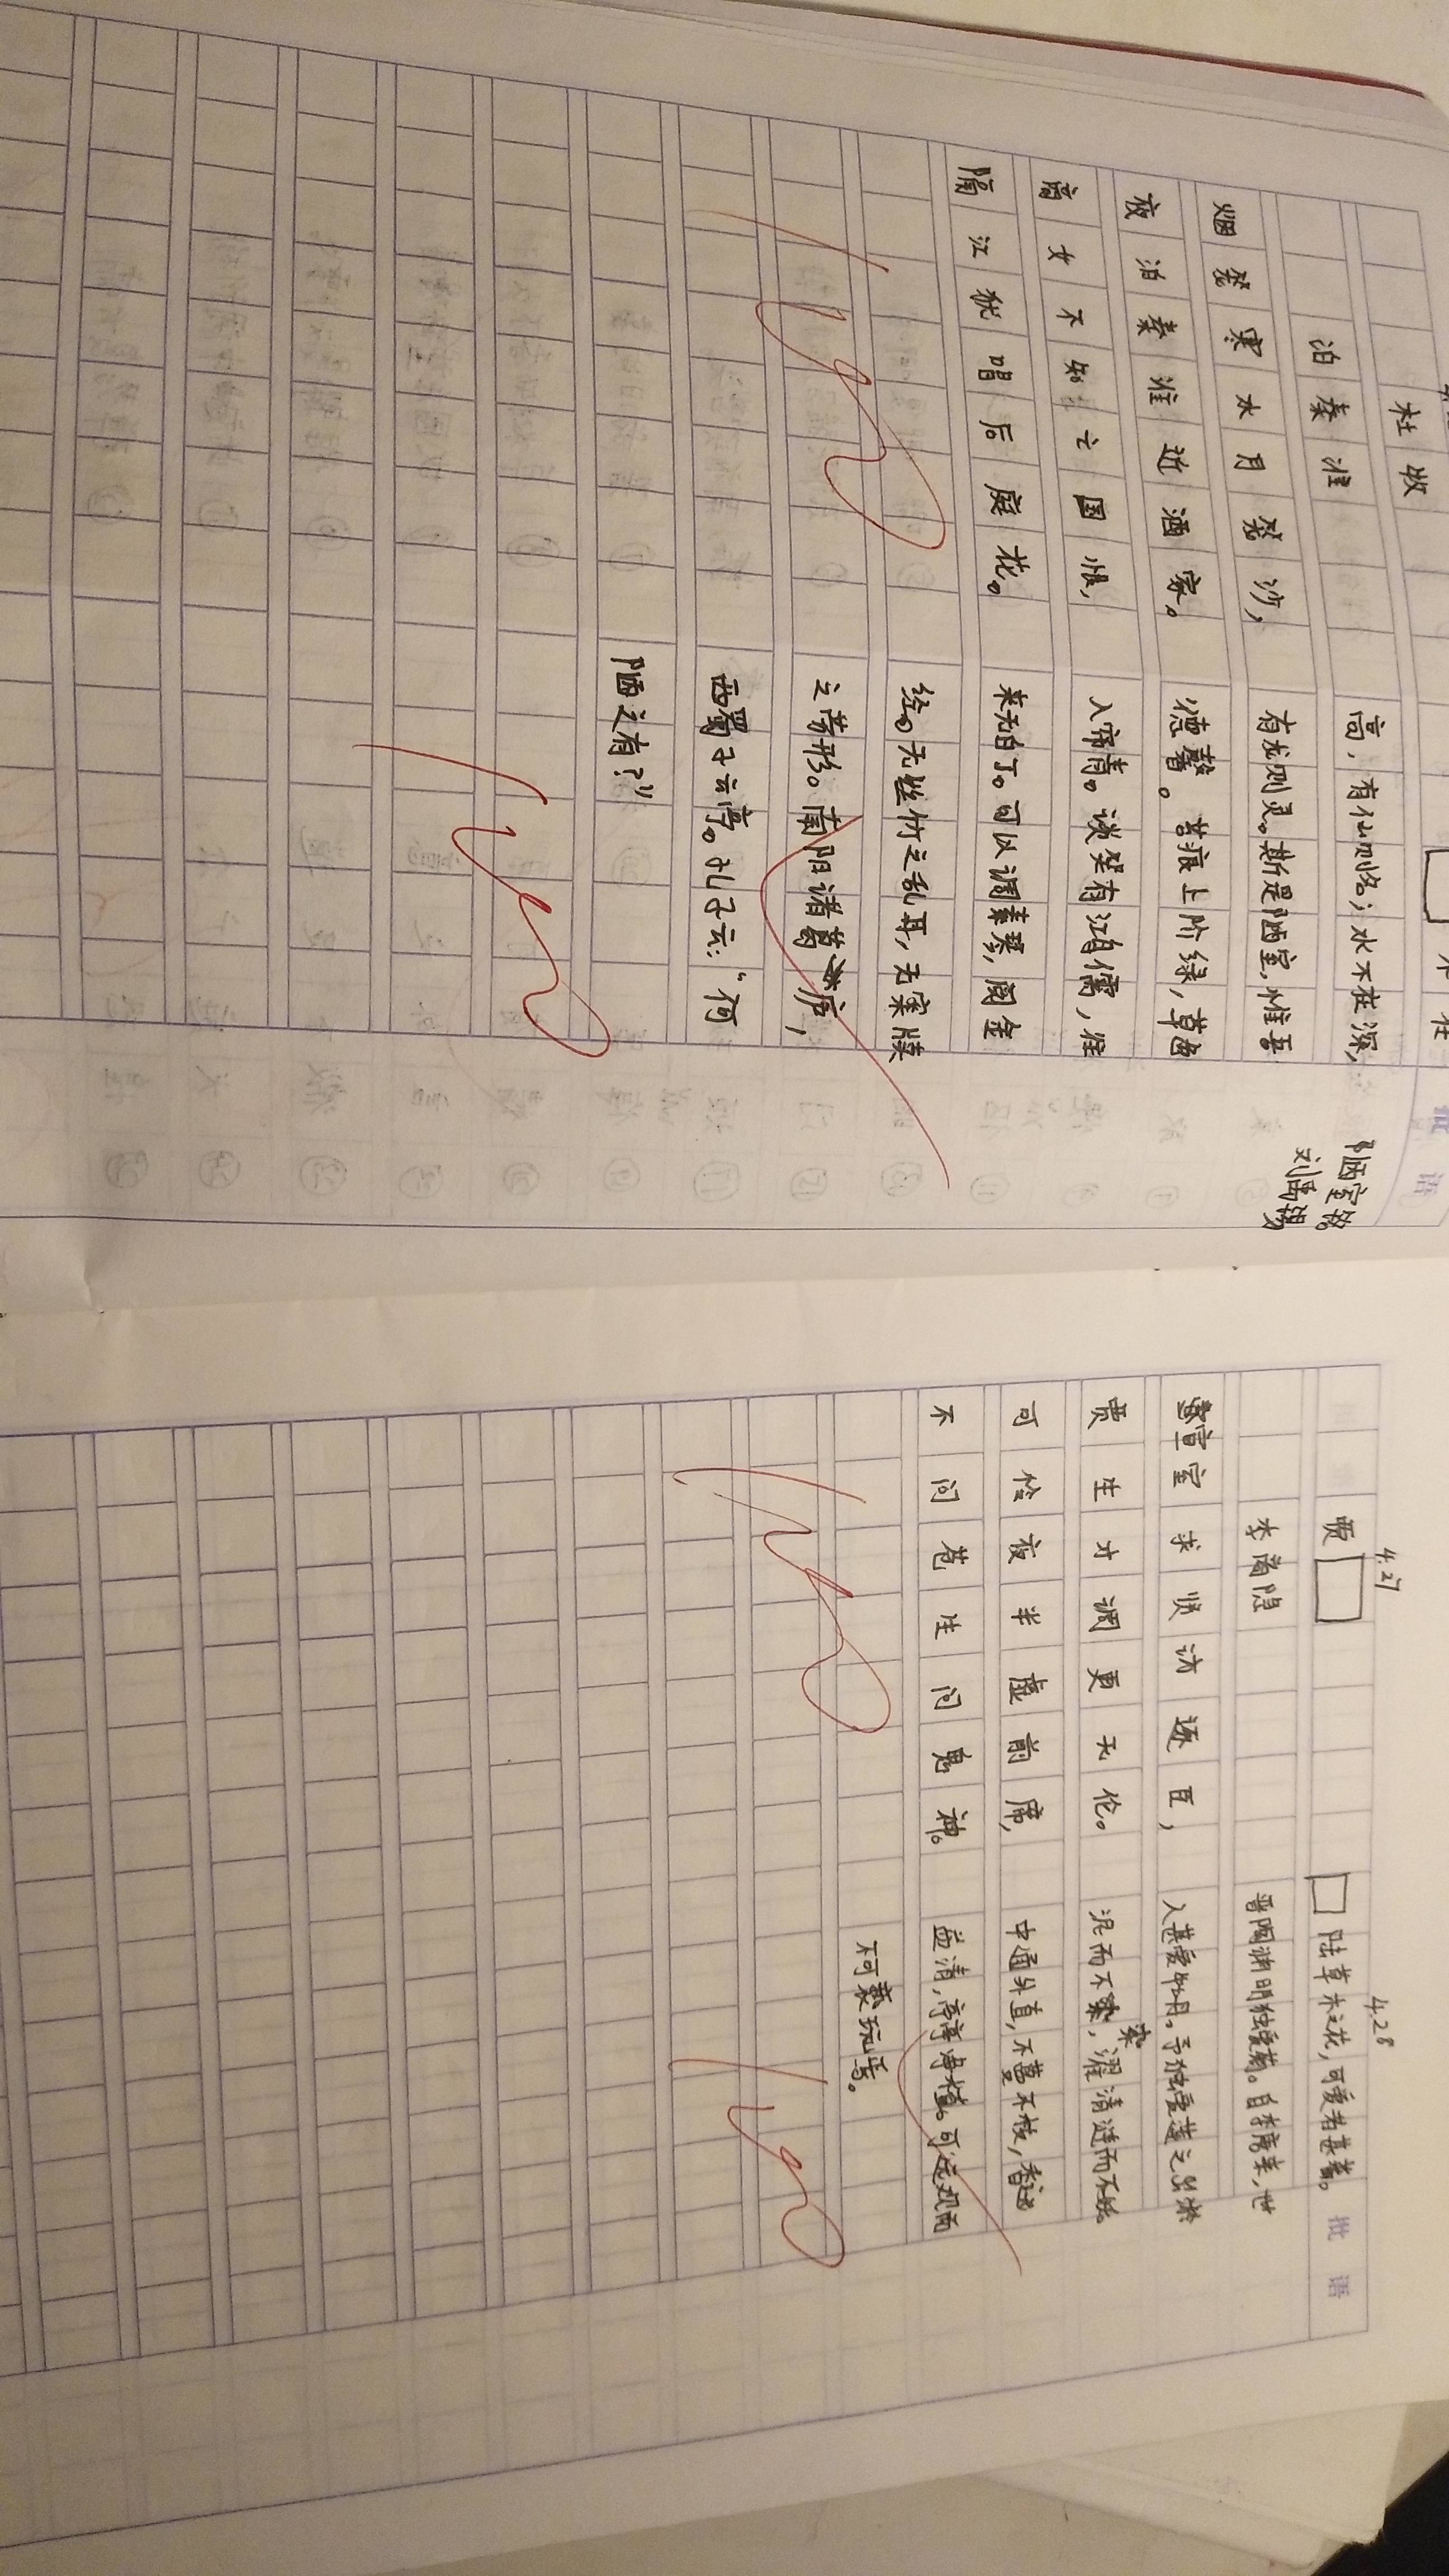 杜牧
泊秦淮
烟笼寒水月笼沙,
夜泊秦淮近酒家。
商女不知亡国恨,
隔江犹唱后庭花。
批语
陋室铭
刘禹锡
不在
高,有仙则名;水不在深,
有龙则灵。斯是陋室,惟吾
德馨。苔痕上阶绿,草色
入帘青。谈笑有鸿儒,往
来无白丁。可以调素琴,阅金
经。无丝竹之乱耳,无案牍
之劳形。南阳诸葛庐,
西蜀子云亭。孔子云:“何
陋之有?”
4.27
贾
李商隐
宣室求贤访逐臣,
贾生才调更无伦。
可怜夜半虚前席,
不问苍生问鬼神。
4.28
陆草木之花,可爱者甚蕃。
晋陶渊明独爱菊。自李唐来,世
人甚爱牡丹。予独爱莲之出淤
泥而不染,濯清涟而不妖。
中通外直,不蔓不枝,香远
益清,亭亭净植。可远观而
不可亵玩焉。
批语